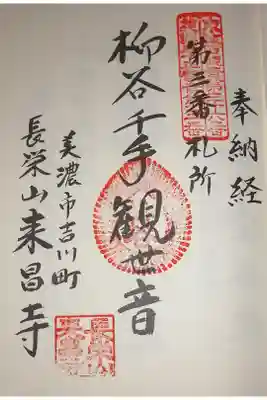 奉納経
第三番
札所
柳谷千手観世音
美濃市吉川町
長栄山来昌寺